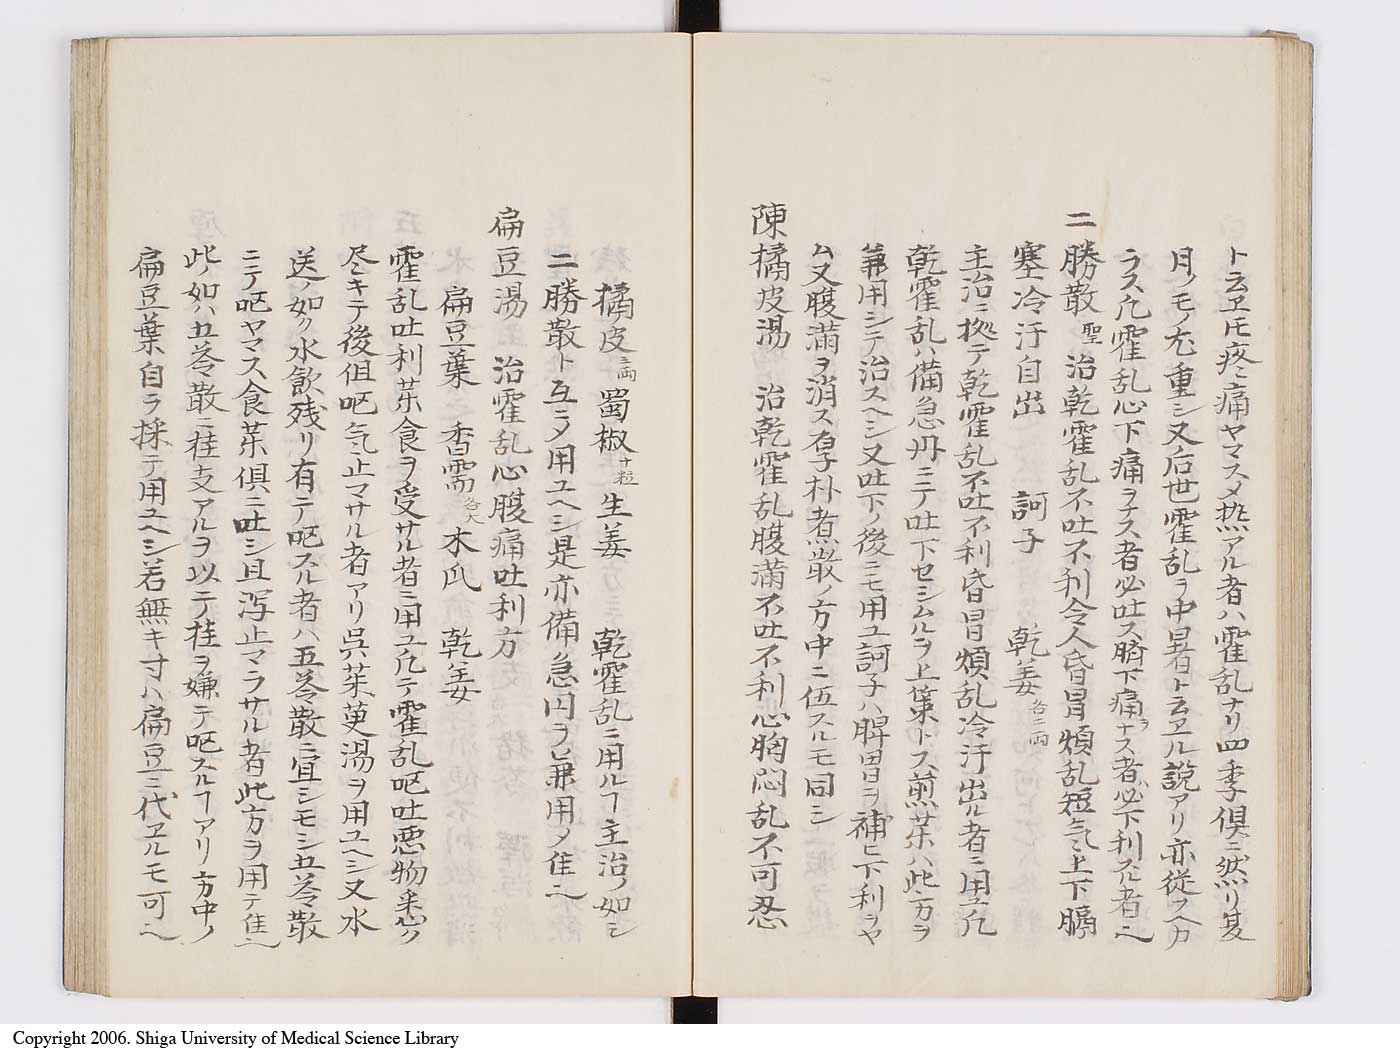 ト云ヱ𪜈疼痛ヤマスメ熱アル者ハ霍乱ナリ四季倶ニ然リ夏
月ノモノ尤重シ又后世霍乱ヲ中暑ト云ヱル説アリ亦従フヘカ
ラス凡霍乱心下痛ヲナス者必吐ス臍下痛ヲナス者ハ必下利スル者也
二勝散 聖 治乾霍乱不吐不利令人昏冒煩乱短气上下膈
塞冷汗自出 訶子 乾姜 各二両
主治ニ拠テ乾霍乱不吐不利昏冒煩乱冷汗出ル者ニ用ユ凡
乾霍乱ハ備急丹ニテ吐下セシムルヲ上策トス煎茱ハ此方ヲ
兼用シテ治スヘシ又吐下ノ後ニモ用ユ訶子ハ脾胃ヲ補ヒ下利ヲヤ
ム又腹満ヲ消ス厚朴煮散ノ方中ニ伍スルモ同シ
陳橘皮湯 治乾霍乱腹満不吐不利心胸悶乱不可忍
橘皮 三両 蜀椒 廿粒 生姜 乾霍乱ニ用ルヿ主治ノ如シ
二勝散ト互ニメ用ユヘシ是亦備急円ヲ兼用メ佳也
扁豆湯 治霍乱心腹痛吐利方
扁豆葉之香需 各大 木瓜 乾姜
霍乱吐利茱食ヲ受サル者ニ用ユ凡テ霍乱呕吐悪物悉ク
尽キテ後但呕气止マサル者アリ呉茱萸湯ヲ用ユヘシ又水
送ノ如ク水飲残リ有テ呕スル者ハ五苓散ニ宜シモシ五苓散
ニテ呕ヤマス食茱倶ニ吐シ且泻止マラサル者此方ヲ用テ佳也
此ノ如ハ五苓散ニ桂支アルヲ以テ桂ヲ嫌テ呕スルヿアリ方中ノ
扁豆葉自ラ採テ用ユヘシ若無キ寸ハ扁豆ニ代ヱルモ可也
Copyright 2006. Shiga University of Medical Science Library